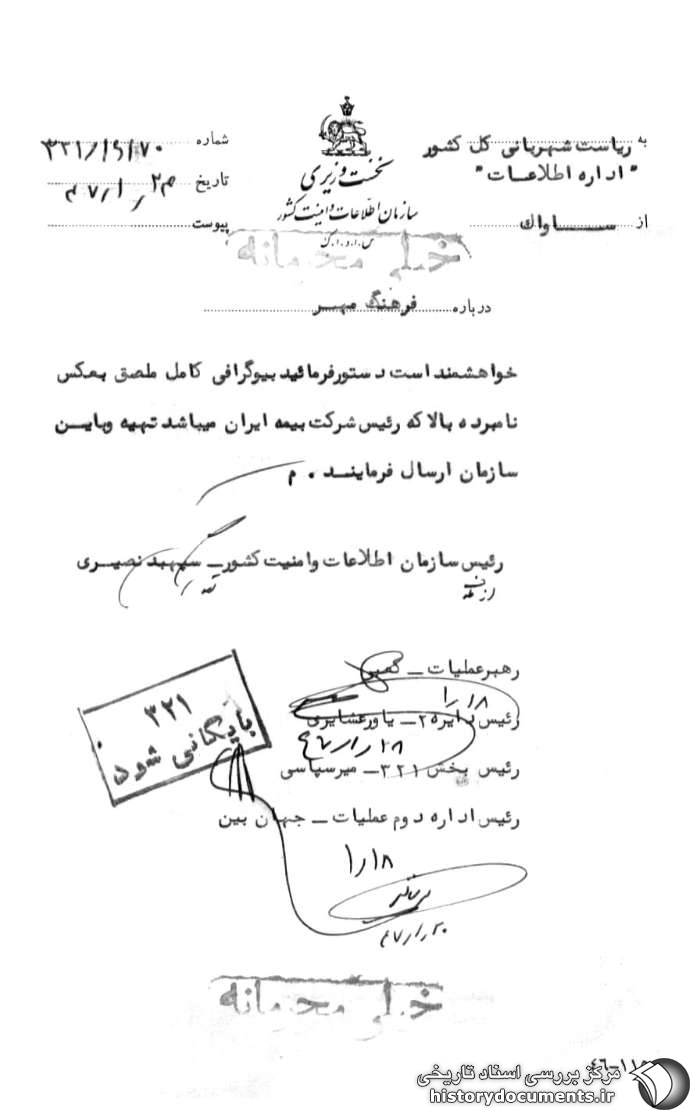 به ریاست شهربانی کل کشور
"اداره اطلاعات"
از ســـاواك
نخست وزیری
سازمان اطلاعات و امنیت کشور
س.ا.و.ا.ک
شماره
تاریخ
پیوست
خیلی محرمانه
درباره فرهنگ مهـر
خواهشمند است دستور فرمائید بیوگرافی کامل ملصق بعکس
نامبرده بالا که رئیس شرکت بیمه ایران میباشد تهیه و باین
سازمان ارسال فرماینـد . م
رئیس سازمان اطلاعات و امنیت کشور ــ سپهبد نصیـری
رهبر عملیات ــ
۱٫۱۸
رئیس دایره ۲ــ یاور عشایری
رئیس بخش ۳۲۱ــ میرسپاسی
رئیس اداره دوم عملیات ــ جهان بین
۱٫۱۸
۳۲۱
بایگانی شود
خیلی محرمانه
مرکز بررسی اسناد تاریخی
historydocuments.ir